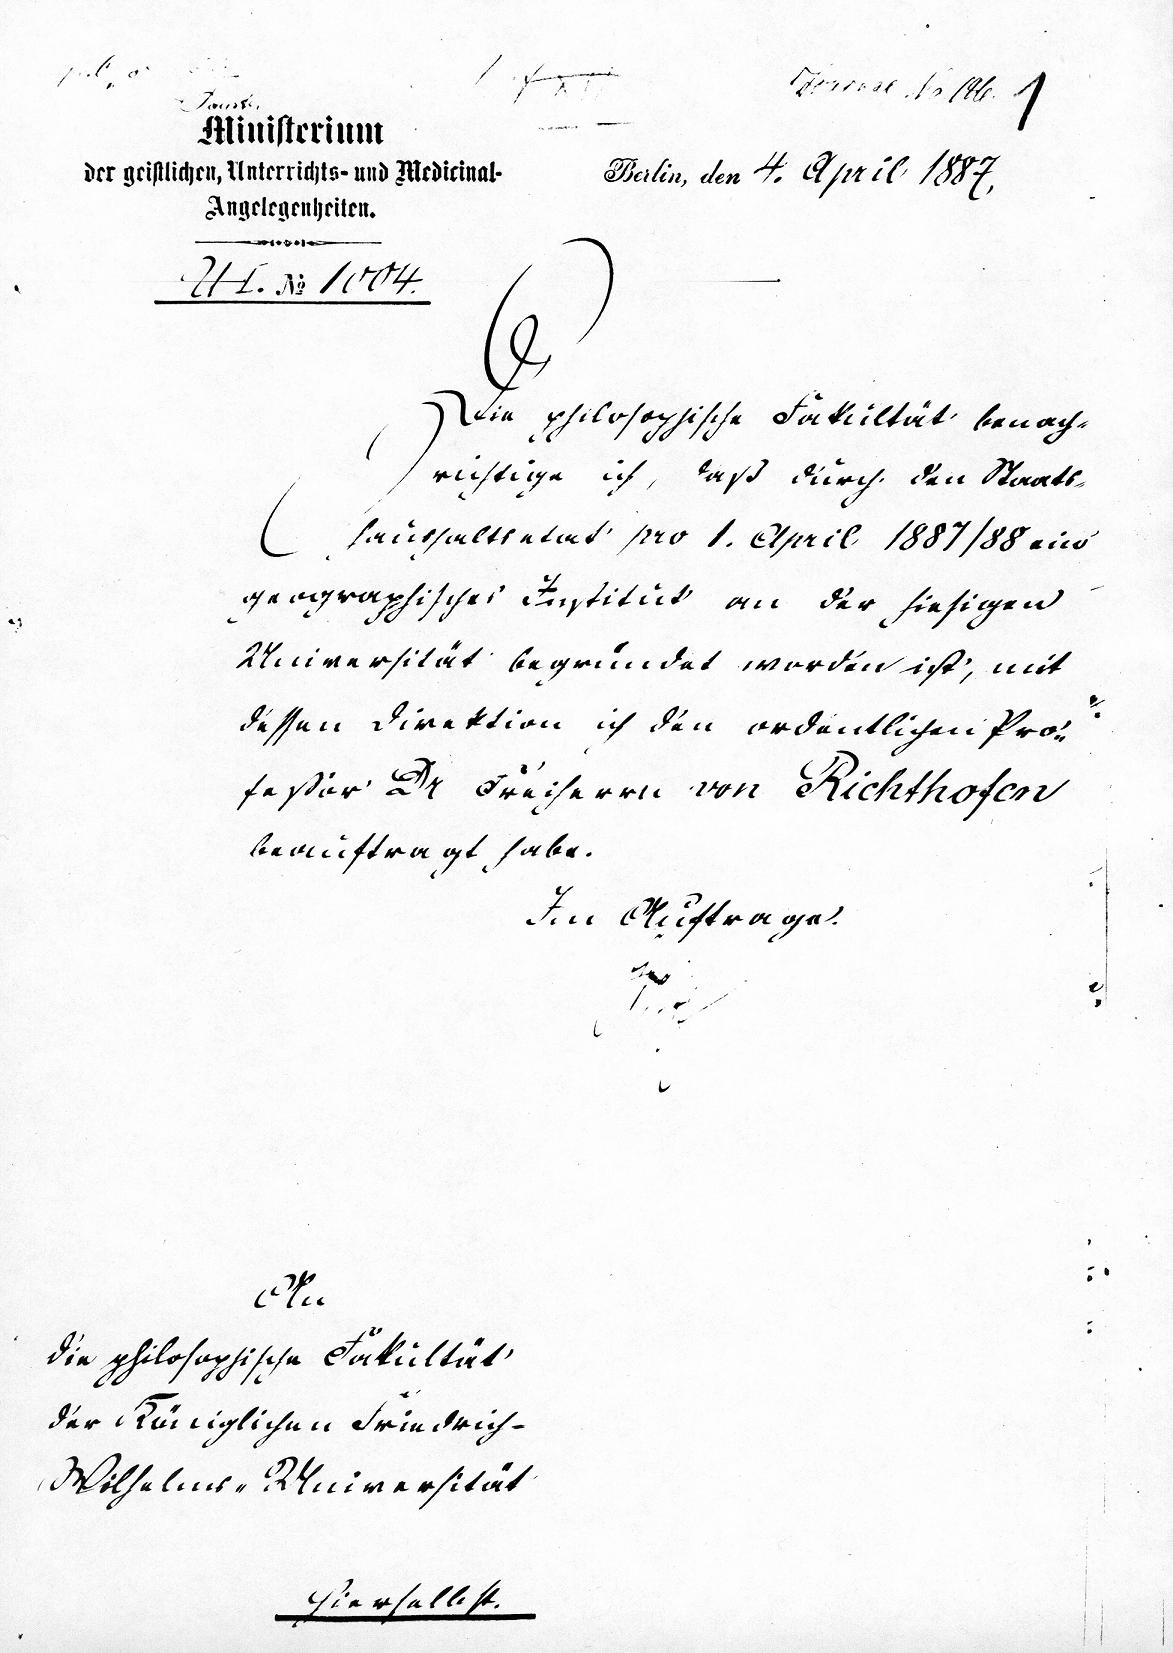 Ministerium
der geistlichen, Unterrichts- und Medicinal-
Angelegenheiten.
Berlin, den 4. April 1887.
U I. № 1004.
Die philosophische Fakultät benach-
richtige ich, daß durch den Staats-
haushaltsetat pro 1. April 1887/88 ein
geographisches Institut an der hiesigen
Universität begründet worden ist, mit
dessen Direktion ich den ordentlichen Pro-
fessor Dr Freiherrn von Richthofen
beauftragt habe.
Im Auftrage.
An
die philosophische Fakultät
der Königlichen Friedrich-
Wilhelms-Universität
hierselbst.